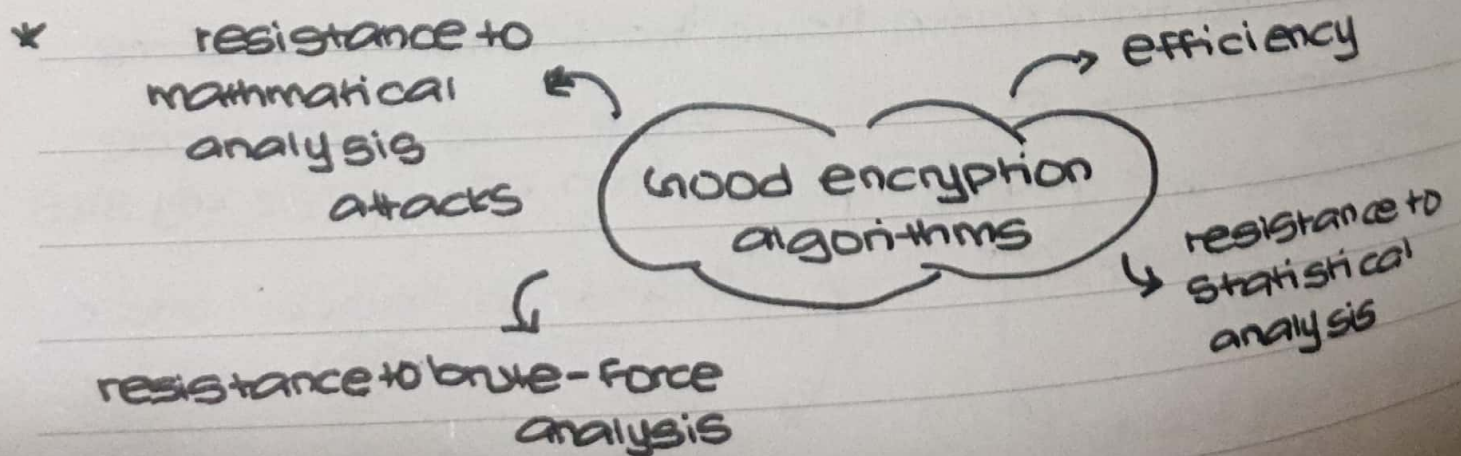 * resistance to
mathmatical
analysis
attacks
efficiency
Good encryption
algorithms
resistance to
statistical
analysis
resistance to brute-force
analysis